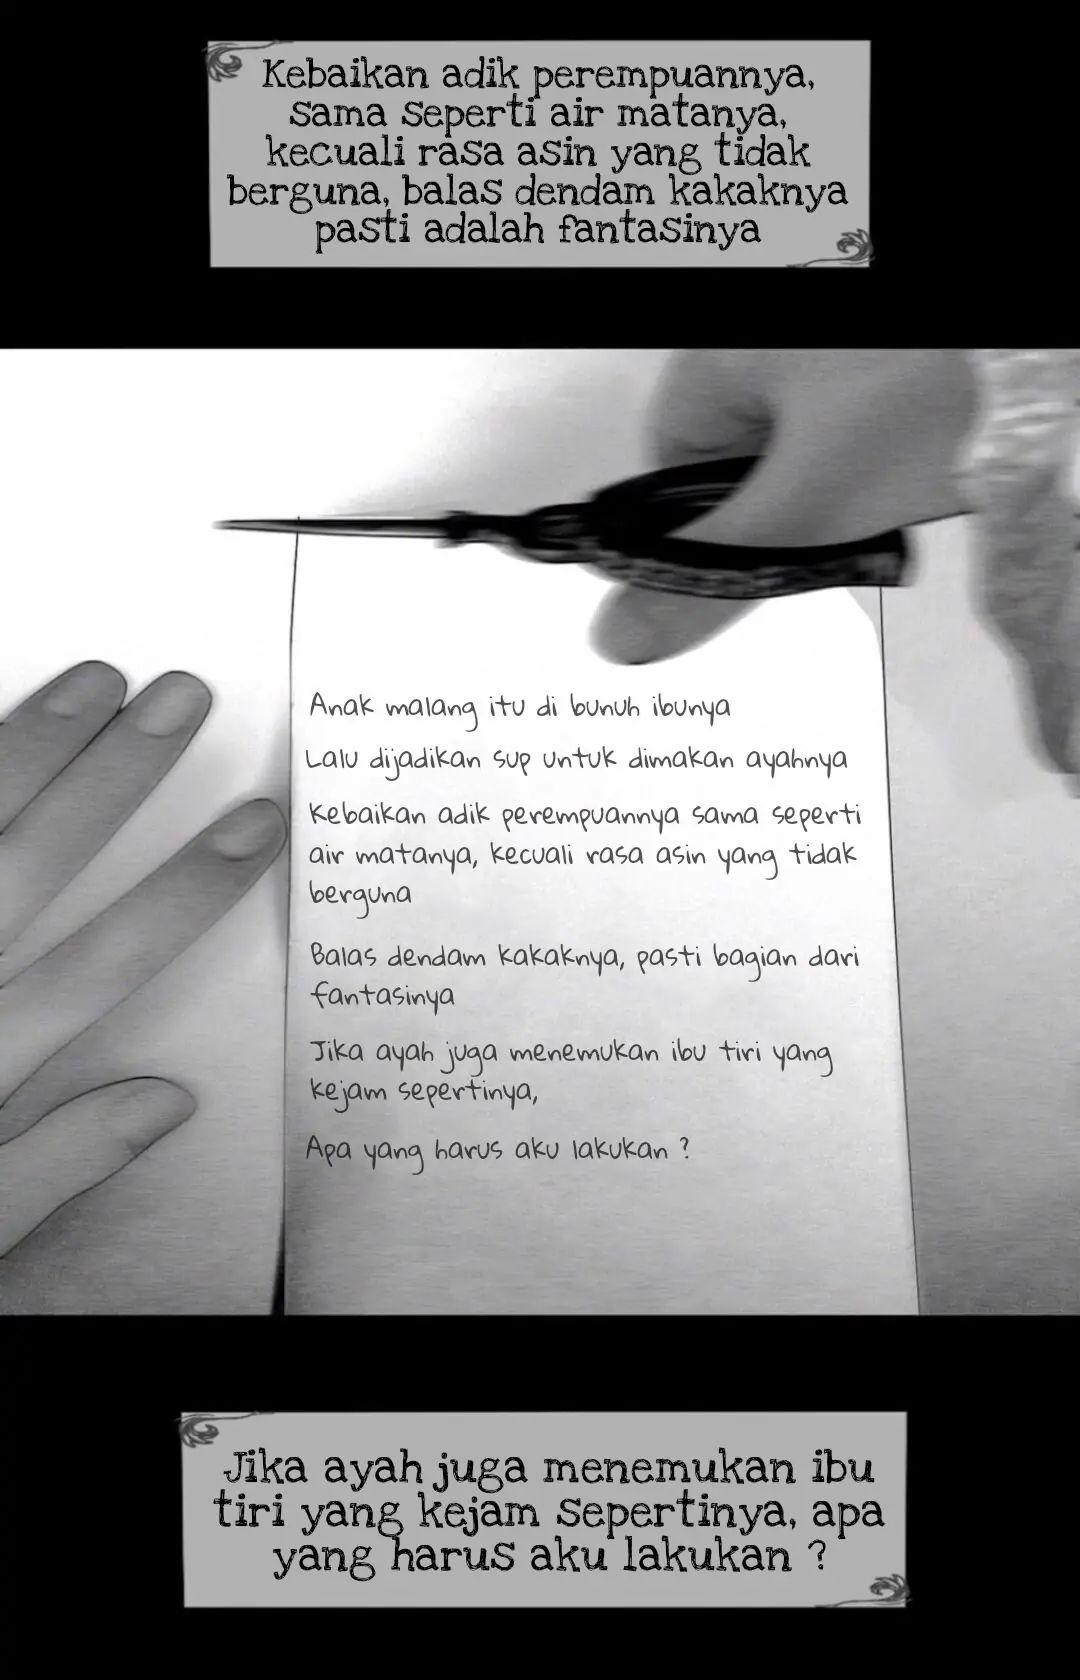 Kebaikan adik perempuannya,
sama seperti air matanya,
kecuali rasa asin yang tidak
berguna, balas dendam kakaknya
pasti adalah fantasinya
Anak malang itu di bunuh ibunya
Lalu dijadikan sup untuk dimakan ayahnya
Kebaikan adik perempuannya sama seperti
air matanya, kecuali rasa asin yang tidak
berguna
Balas dendam kakaknya, pasti bagian dari
fantasinya
Jika ayah juga menemukan ibu tiri yang
kejam sepertinya,
Apa yang harus aku lakukan ?
Jika ayah juga menemukan ibu
tiri yang kejam sepertinya, apa
yang harus aku lakukan ?